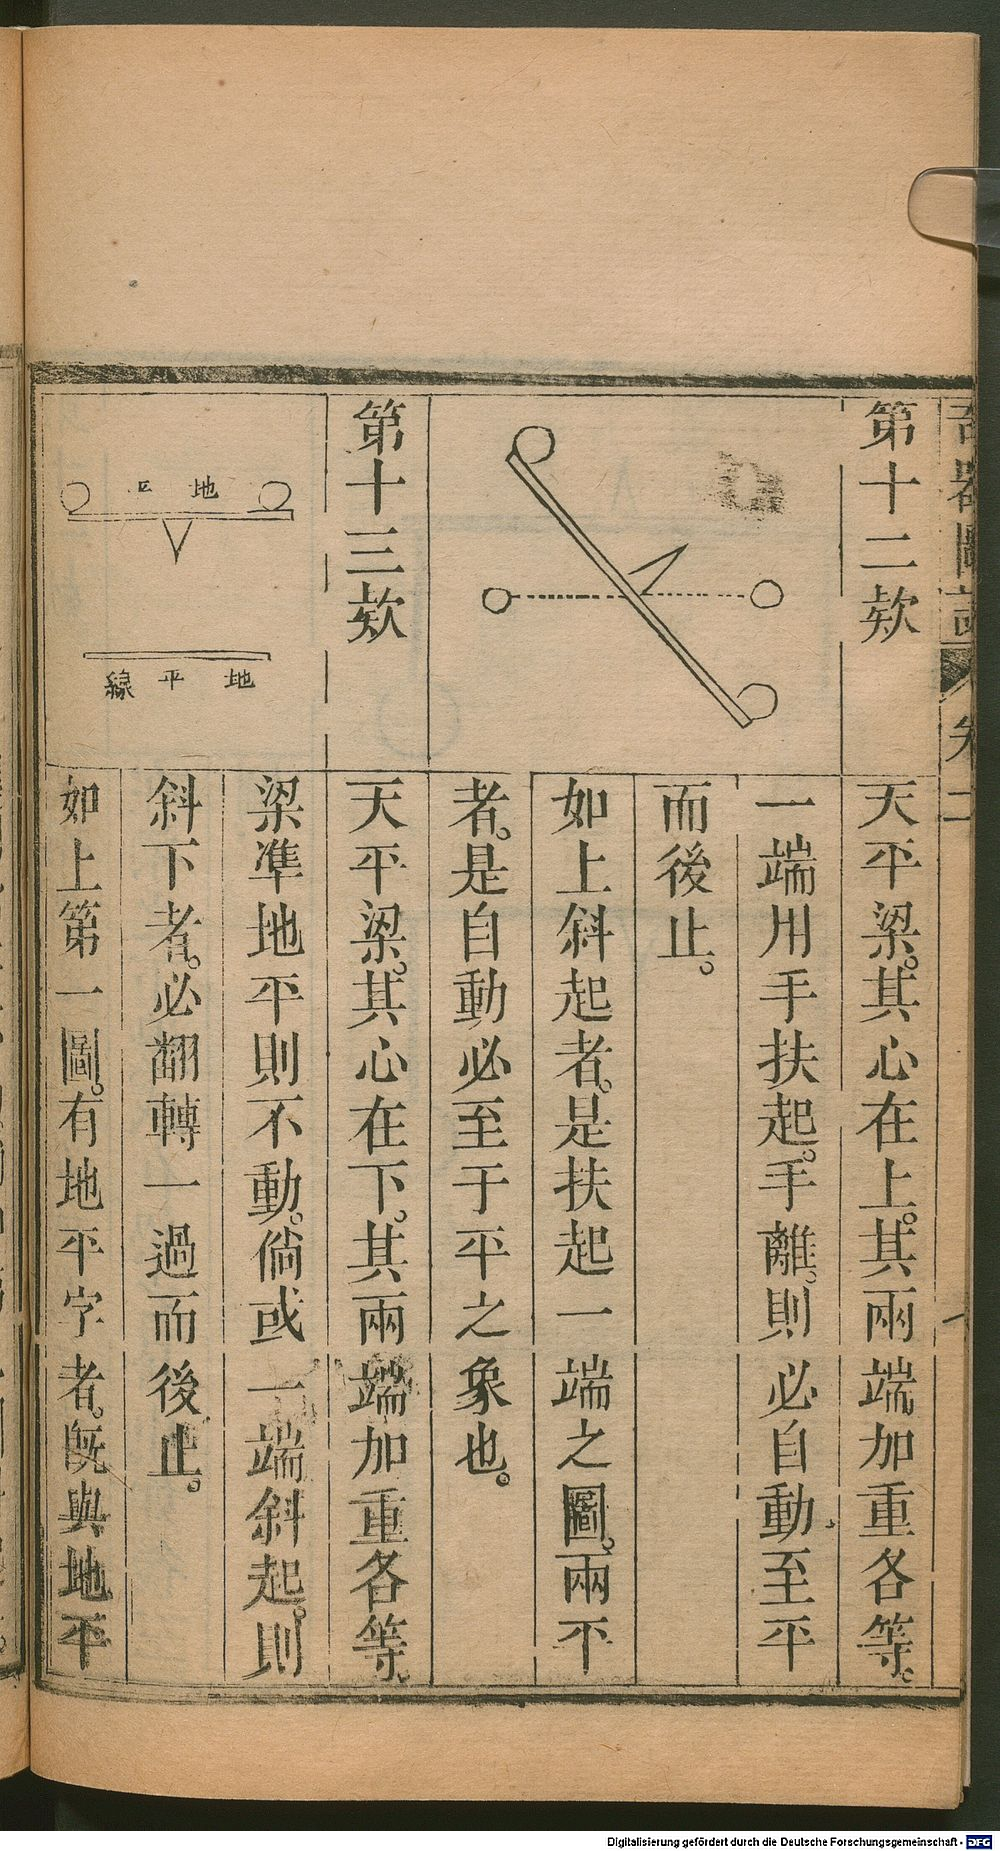 第十二欵
天平梁。其心在上。其兩端加重各等。
一端用手扶起。手離。則必自動至平
而後止。
如上斜起者。是扶起一端之圖。兩平
者。是自動必至于平之象也。
第十三欵
天平梁。其心在下。其兩端加重各等。
梁凖地平則不動。倘或一端斜起。則
斜下者。必翻轉一過而後止。
地平
地平線
如上第一圖。有地平字者。旣與地平
Digitalisierung gefördert durch die Deutsche Forschungsgemeinschaft - DFG